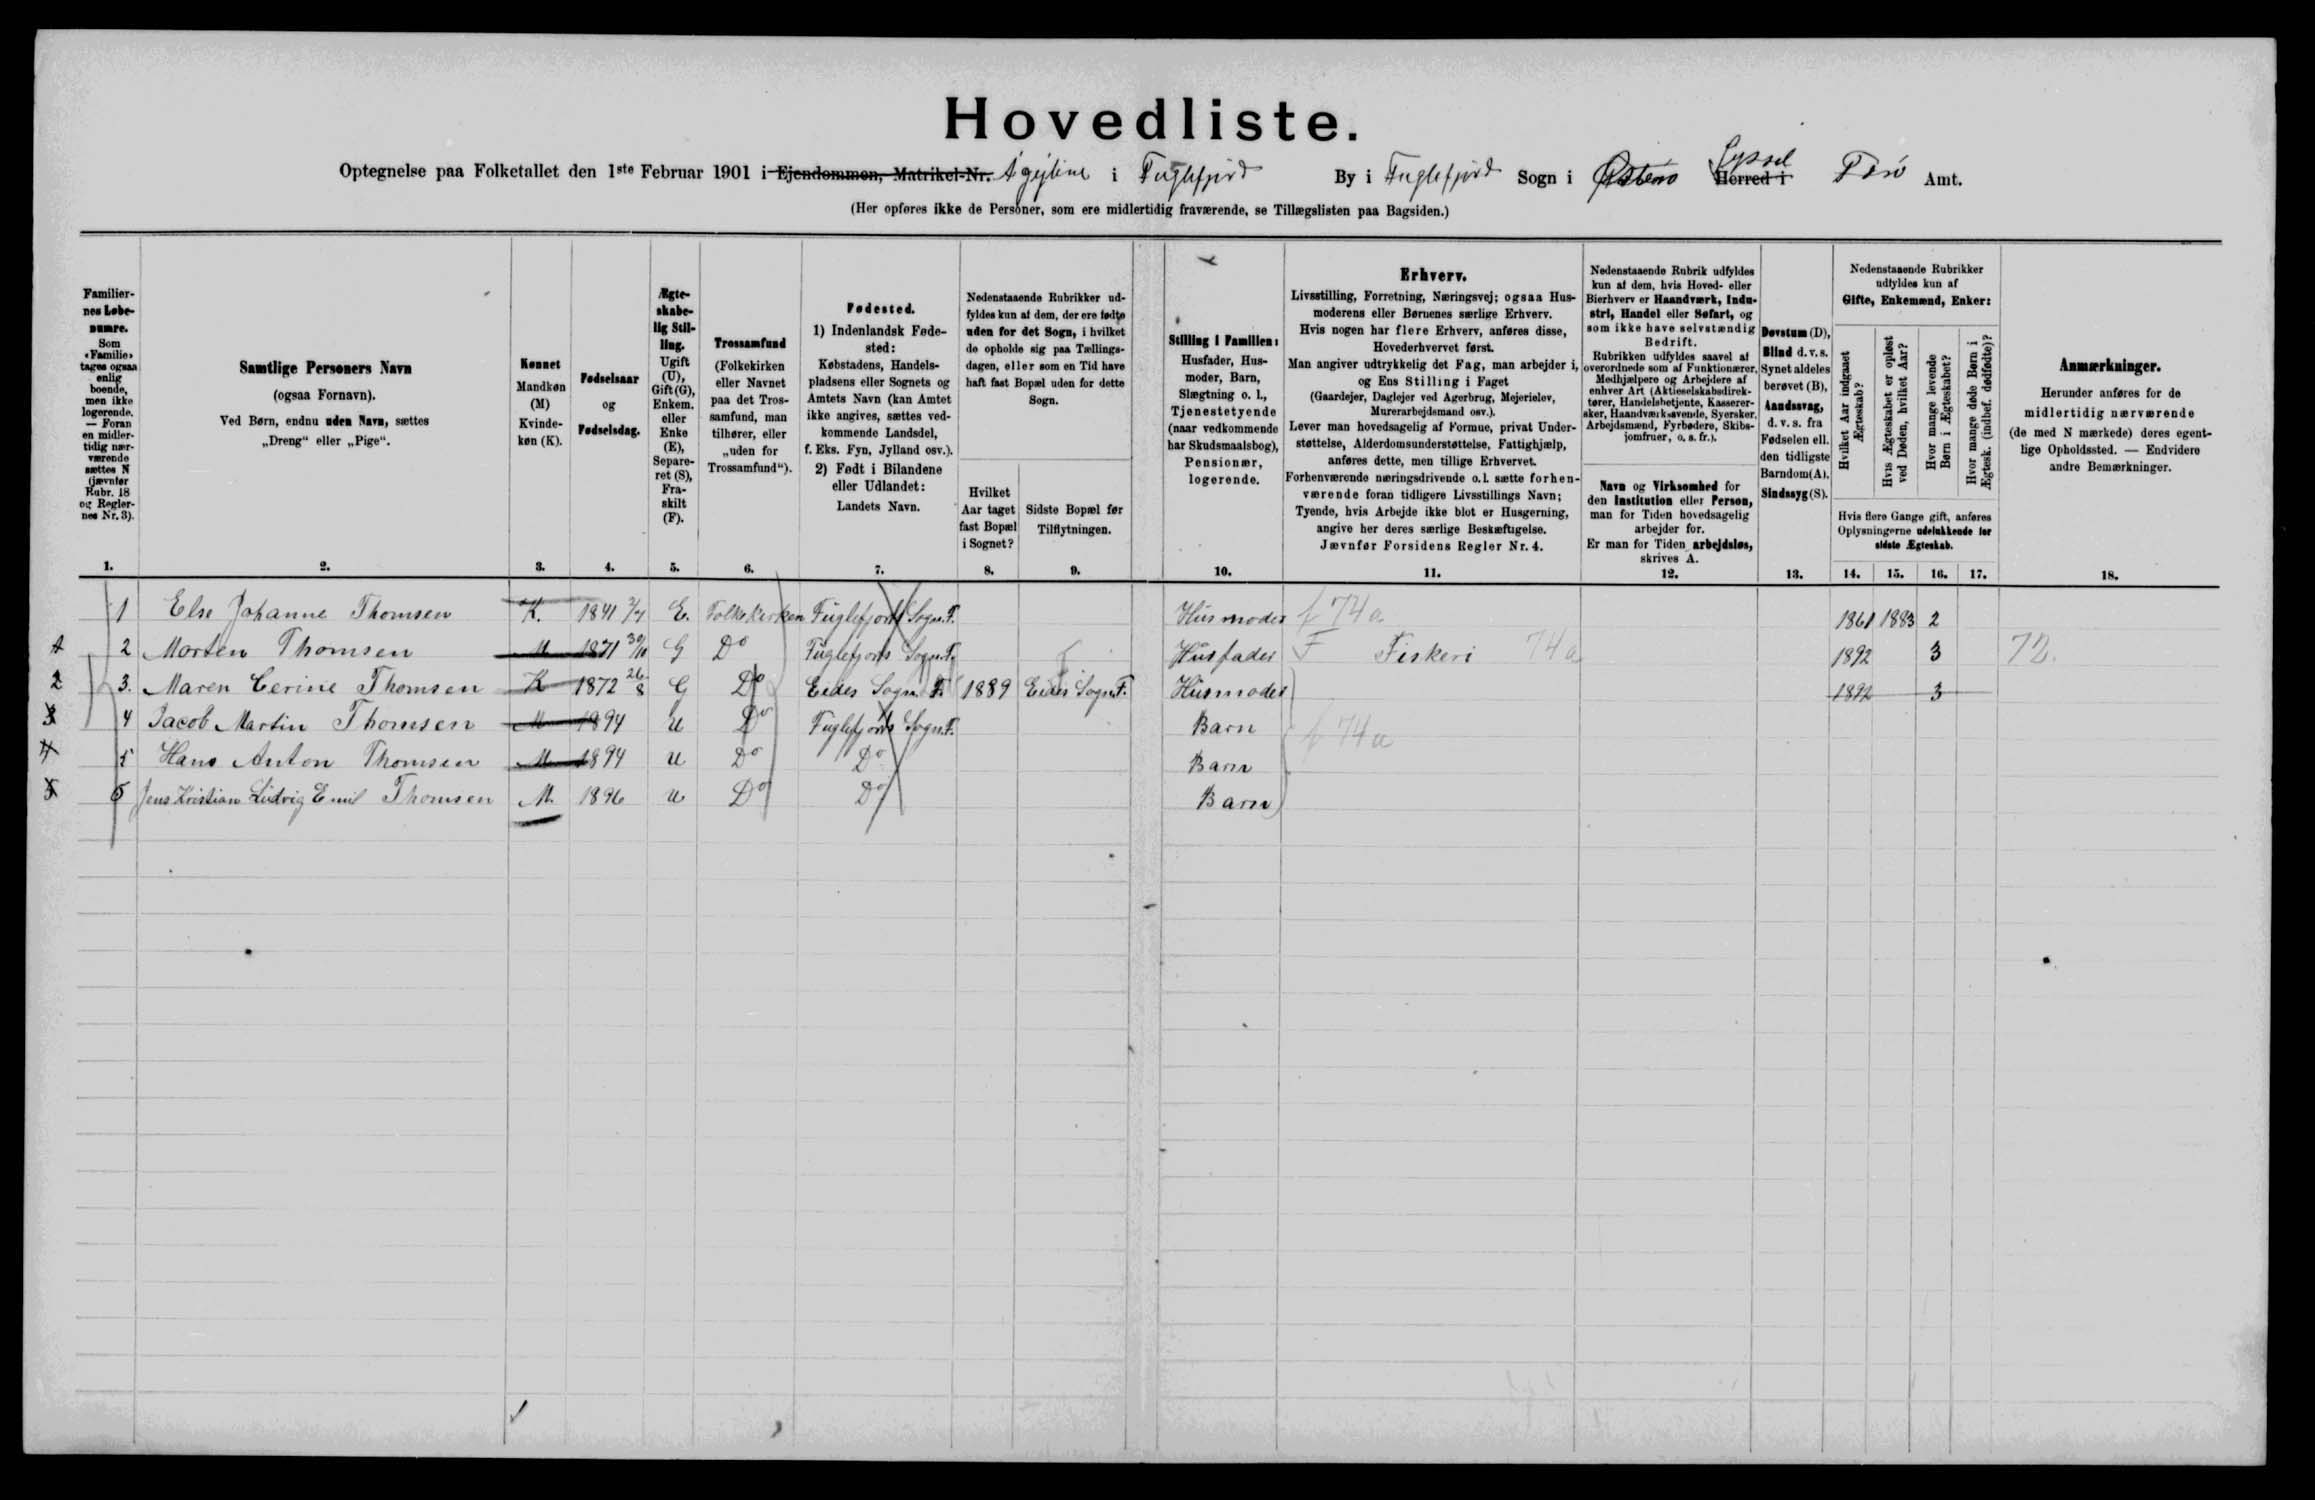 Hovedliste.
Optegnelse paa Folketallet den 1ste Februar 1901 i Ejendommen, Matrikel-Nr. i Fuglefjord By i Fuglefjord Sogn i Østerø Herred i Syssel Færø Amt.
(Her opføres ikke de Personer, som ere midlertidig fraværende, se Tillægslisten paa Bagsiden.)
Familiernes Løbenumre.
Som «Familie» tages ogsaa enlig boende, men ikke logerende. — Foran en midlertidig nærværende sættes N (jævnfør Rubr. 18 og Reglernes Nr. 3).
1.
Samtlige Personers Navn
(ogsaa Fornavn).
Ved Børn, endnu uden Navn, sættes
„Dreng“ eller „Pige“.
2.
Kønnet
Mandkøn (M)
Kvindekøn (K).
3.
Fødselsaar
og
Fødselsdag.
4.
Ægteskabelig Stilling.
Ugift (U), Gift (G), Enkem. eller Enke (E), Separeret (S), Fraskilt (F).
5.
Trossamfund
(Folkekirken eller Navnet paa det Trossamfund, man tilhører, eller „uden for Trossamfund“).
6.
Fødested.
1) Indenlandsk Fødested:
Købstadens, Handelspladsens eller Sognets og Amtets Navn (kan Amtet ikke angives, sættes vedkommende Landsdel, f. Eks. Fyn, Jylland osv.).
2) Født i Bilandene eller Udlandet:
Landets Navn.
7.
Nedenstaaende Rubrikker udfyldes kun af dem, der ere fødte uden for det Sogn, i hvilket de opholde sig paa Tællingsdagen, eller som en Tid have haft fast Bopæl uden for dette Sogn.
Hvilket Aar taget fast Bopæl i Sognet?
8.
Sidste Bopæl før Tilflytningen.
9.
Stilling i Familien:
Husfader, Husmoder, Barn, Slægtning o. l., Tjenestetyende (naar vedkommende har Skudsmaalsbog), Pensionær, logerende.
10.
Erhverv.
Livsstilling, Forretning, Næringsvej; ogsaa Husmoderens eller Børnenes særlige Erhverv.
Hvis nogen har flere Erhverv, anføres disse, Hovederhvervet først.
Man angiver udtrykkelig det Fag, man arbejder i, og Ens Stilling i Faget
(Gaardejer, Daglejer ved Agerbrug, Mejerielev, Murerarbejdsmand osv.).
Lever man hovedsagelig af Formue, privat Understøttelse, Alderdomsunderstøttelse, Fattighjælp, anføres dette, men tillige Erhvervet.
Forhenværende næringsdrivende o. l. sætte forhenværende foran tidligere Livsstillings Navn; Tyende, hvis Arbejde ikke blot er Husgerning, angive her deres særlige Beskæftigelse.
Jævnfør Forsidens Regler Nr. 4.
11.
Nedenstaaende Rubrik udfyldes kun af dem, hvis Hoved- eller Bierhverv er Haandværk, Industri, Handel eller Søfart, og som ikke have selvstændig Bedrift.
Rubrikken udfyldes saavel af overordnede som af Funktionærer, Medhjælpere og Arbejdere af enhver Art (Aktieselskabsdirektører, Handelsbetjente, Kasserersker, Haandværkssvende, Syersker, Arbejdsmænd, Fyrbødere, Skibsjomfruer, o. s. fr.).
Navn og Virksomhed for den Institution eller Person, man for Tiden hovedsagelig arbejder for.
Er man for Tiden arbejdsløs, skrives A.
12.
Døvstum (D), Blind d. v. s. Synet aldeles berøvet (B), Aandssvag, d. v. s. fra Fødselen ell. den tidligste Barndom (A), Sindssyg (S).
13.
Nedenstaaende Rubrikker udfyldes kun af
Gifte, Enkemænd, Enker:
Hvilket Aar indgaaet Ægteskab?
Hvis Ægteskabet er opløst ved Døden, hvilket Aar?
Hvor mange levende Børn i Ægteskabet?
Hvor mange døde Børn i Ægtesk. (indbef. dødfødte)?
Hvis flere Gange gift, anføres Oplysningerne udelukkende for sidste Ægteskab.
14. 15. 16. 17.
Anmærkninger.
Herunder anføres for de midlertidig nærværende (de med N mærkede) deres egentlige Opholdssted. — Endvidere andre Bemærkninger.
18.
1 Else Johanne Thomsen K. 1841 2/4 E. Folkekirken Fuglefjords Sogn. F. Husmoder f 74a 1861 1883 2
2 Morten Thomsen M 1871 30/10 G Do Fuglefjords Sogn. F. Husfader F Fiskeri 74a 1892 3 72.
2 3. Maren Cerine Thomsen K 1872 26/8 G Do Eides Sogn. F. 1889 Eides Sogn. F. Husmoder 1892 3
3 4 Jacob Martin Thomsen M 1894 U Do Fuglefjords Sogn. F. Barn f 74a
4 5 Hans Anton Thomsen M 1894 U Do Do Barn
5 6 Jens Kristian Ludvig Emil Thomsen M. 1896 U Do Do Barn